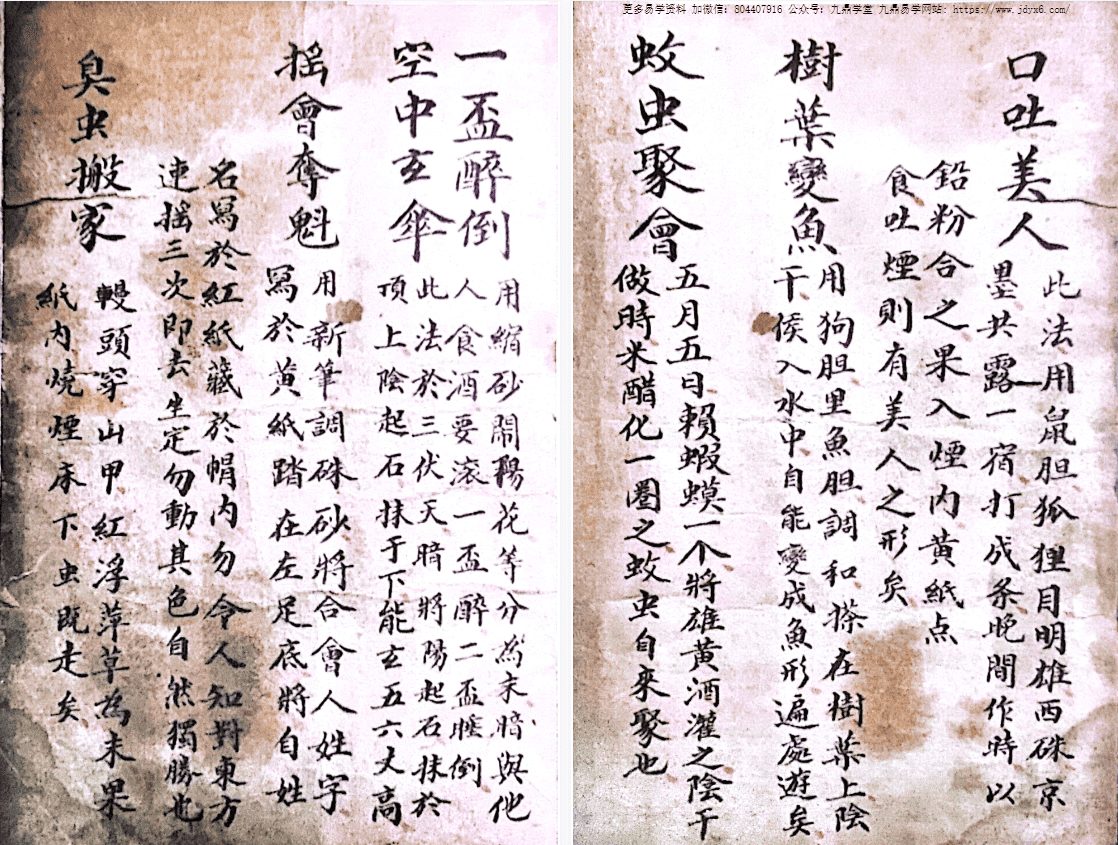 更多易学资料 加微信：804407916 公众号：九鼎学堂 九鼎易学网站：https://www.jdyx6.com/
口吐美人
此法用鼠胆狐狸目明雄西硃京
墨共露一宿打成条晚間作時以
鉛粉合之果入煙内黄紙点
食吐煙則有美人之形矣
樹葉變魚
用狗胆里魚胆調和搽在樹葉上陰
干侯入水中自能變成魚形遍處遊矣
蚊虫聚會
五月五日賴蝦蟆一个將雄黄酒灌之陰干
做時米醋化一圈之蚊虫自來聚也
一盃醉倒
用緔砂鬧陽花等分為末暗與他
人食酒要滚一盃醉二盃睡倒
空中玄傘
此法於三伏天暗將陽起石抹於
項上陰起石抹于下能玄五六丈高
摇會奪魁
用新筆調硃砂將合會人姓字
寫於黄紙踏在左足底將自姓
名寫於紅紙藏於帽内勿令人知對東方
連摇三次即去生定勿動其色自然獨勝也
臭虫搬家
饅頭穿山甲紅浮萍草為末果
紙内燒煙床下虫既走矣